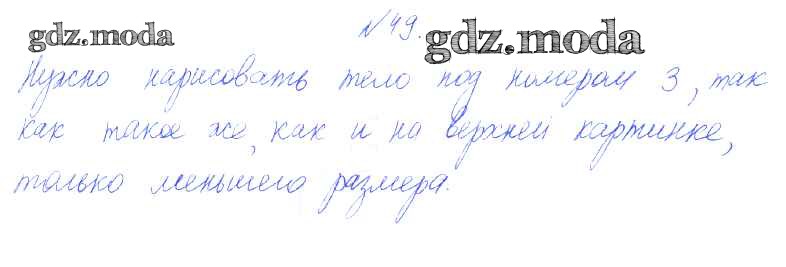 gdz.moda
№49. gdz.moda
Нужно нарисовать тело под номером 3, так
как такое же, как и на верхней картинке,
только меньшего размера.